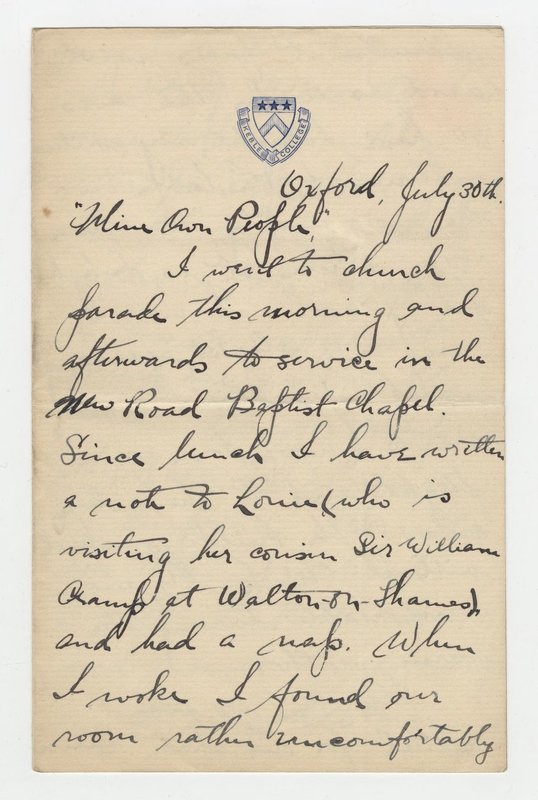 KEBLE COLLEGE
Oxford, July 30th.
"Mine Own People,"
I went to church
parade this morning and
afterwards to service in the
New Road Baptist Chapel.
Since lunch I have written
a note to (who is
visiting her cousin Sir William
at Walton-on-Thames)
and had a nap. When
I woke I found our
room rather uncomfortably